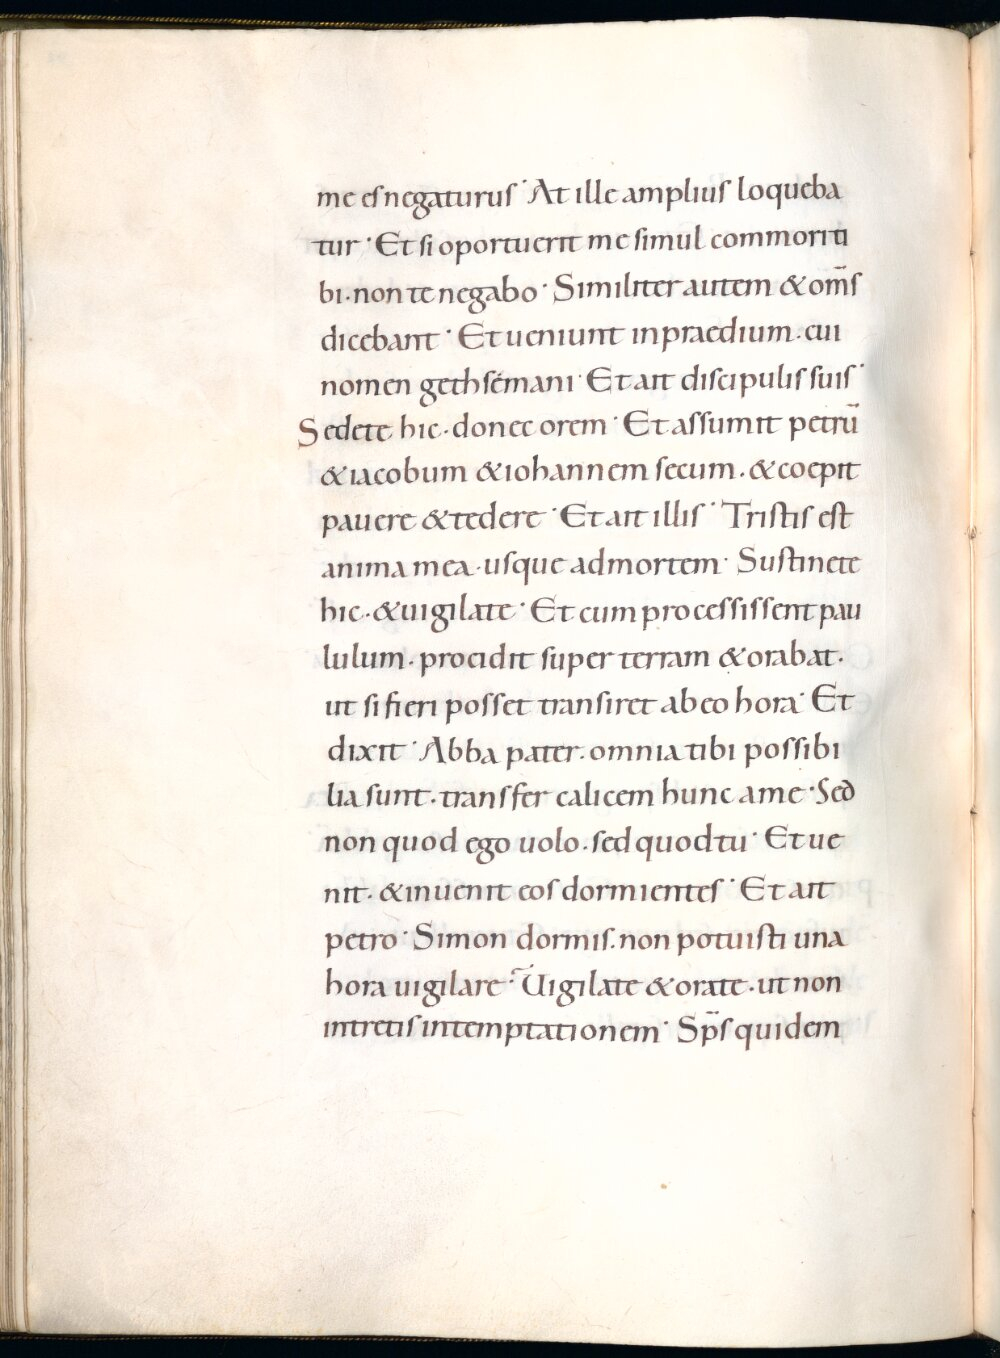 me es negaturus · At ille amplius loqueba
tur · Et si oportuerit me simul commori ti
bi · non te negabo · Similiter autem & om̄s
dicebant · Et ueniunt in praedium · cui
nomen gethsémani · Et ait discipulis suis ·
Sedete hic · donec orem · Et assumit petrū
& iacobum & iohannem secum · & coepit
pauere & tedere · Et ait illis · Tristis est
anima mea · usque ad mortem · Sustinete
hic · & uigilate · Et cum processissent pau
lulum · procidit super terram & orabat ·
ut si fieri posset transiret ab eo hora · Et
dixit · Abba pater · omnia tibi possibi
lia sunt · transfer calicem hunc a me · Sed
non quod ego uolo · sed quod tu · Et ue
nit · & inuenit eos dormientes · Et ait
petro · Simon dormis · non potuisti una
hora uigilare · Uigilate & orate · ut non
intretis in temptationem · Sp̄s quidem